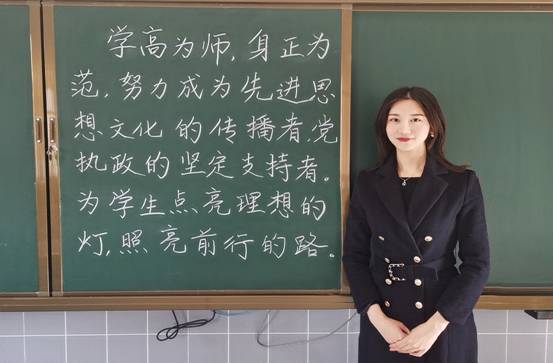 学高为师,身正为
范,努力成为先进思
想文化的传播者,党
执政的坚定支持者。
为学生点亮理想的
灯,照亮前行的路。